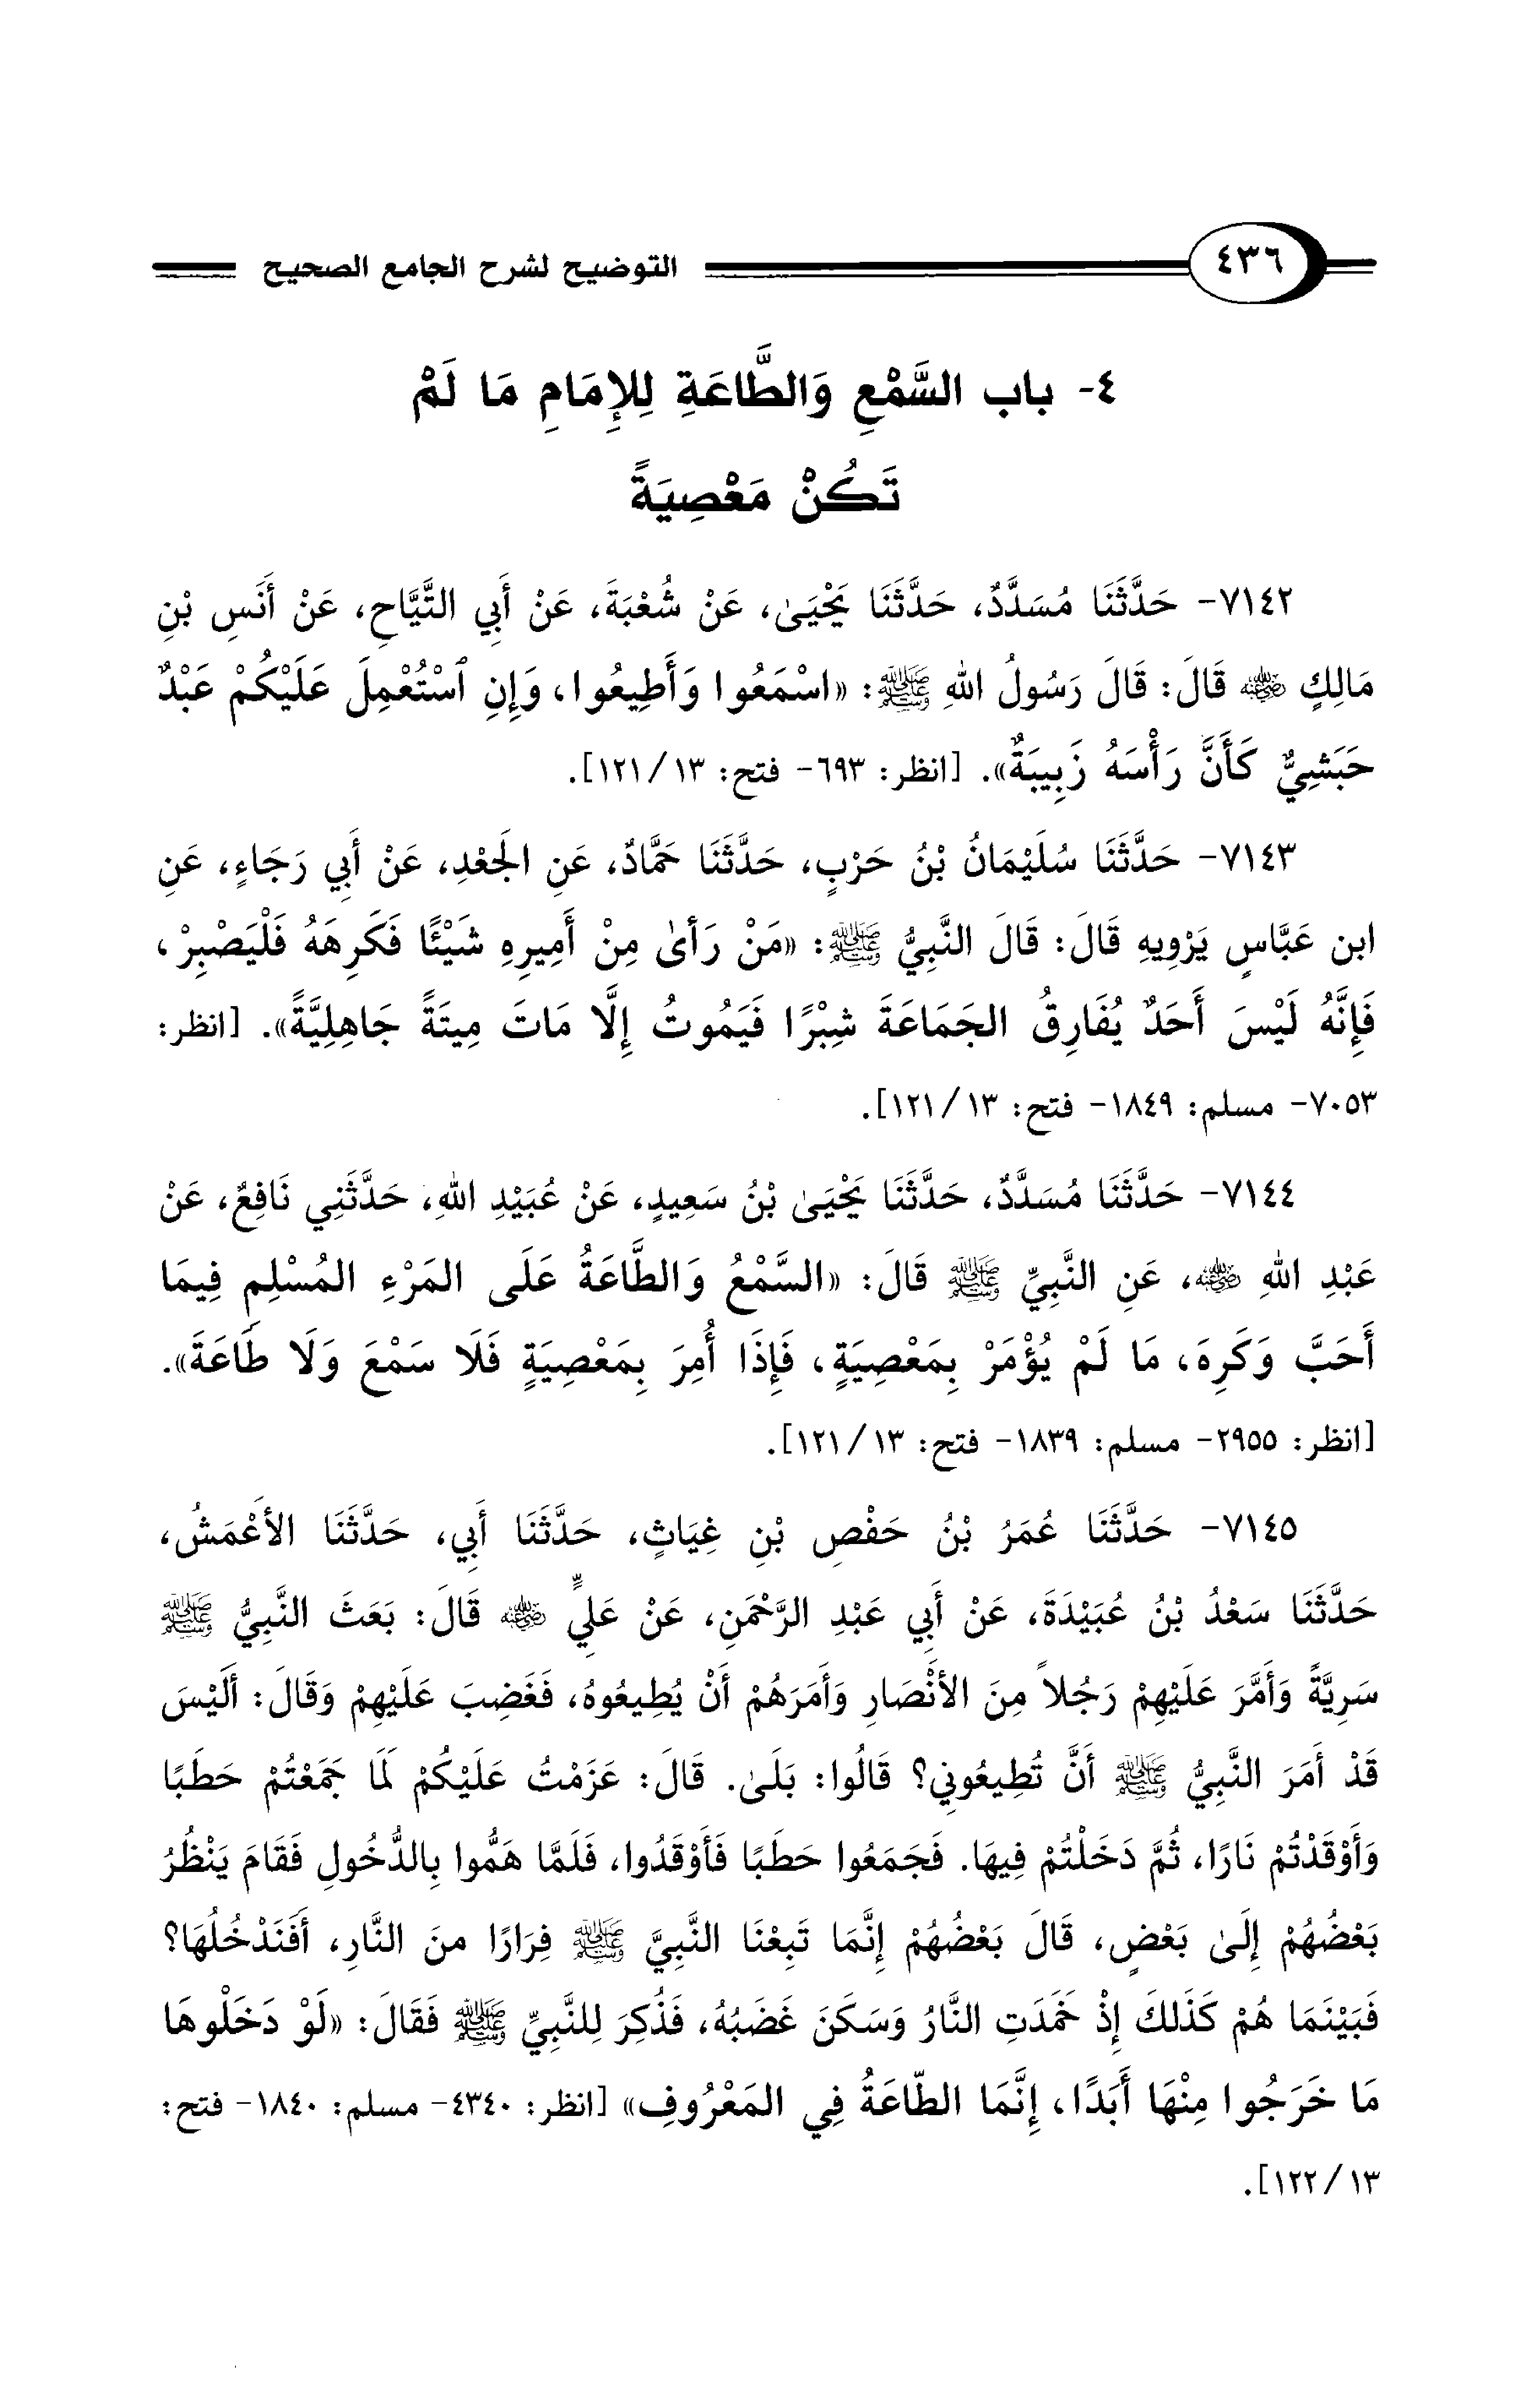 ٤٣٦ التوضيح لشرح الجامع الصحيح
٤- باب السَّمْعِ وَالطَّاعَةِ لِلإِمَامِ مَا لَمْ
تَكُنْ مَعْصِيَةً
٧١٤٢- حَدَّثَنَا مُسَدَّدٌ، حَدَّثَنَا يَحْيَىٰ، عَنْ شُعْبَةَ، عَنْ أَبِي التَّيَّاحِ، عَنْ أَنَسِ بْنِ
مَالِكٍ رضي الله عنه قَالَ: قَالَ رَسُولُ اللهِ ﷺ: «اسْمَعُوا وَأَطِيعُوا، وَإِنِ ٱسْتُعْمِلَ عَلَيْكُمْ عَبْدٌ
حَبَشِيٌّ كَأَنَّ رَأْسَهُ زَبِيبَةٌ». [انظر: ٦٩٣- فتح: ١٣/ ١٢١].
٧١٤٣- حَدَّثَنَا سُلَيْمَانُ بْنُ حَرْبٍ، حَدَّثَنَا حَمَّادٌ، عَنِ الجَعْدِ، عَنْ أَبِي رَجَاءٍ، عَنِ
ابن عَبَّاسٍ يَرْوِيهِ قَالَ: قَالَ النَّبِيُّ ﷺ: «مَنْ رَأىٰ مِنْ أَمِيرِهِ شَيْئًا فَكَرِهَهُ فَلْيَصْبِرْ،
فَإِنَّهُ لَيْسَ أَحَدٌ يُفَارِقُ الجَمَاعَةَ شِبْرًا فَيَمُوتُ إِلَّا مَاتَ مِيتَةً جَاهِلِيَّةً». [انظر:
٧٠٥٣- مسلم: ١٨٤٩- فتح: ١٣/ ١٢١].
٧١٤٤- حَدَّثَنَا مُسَدَّدٌ، حَدَّثَنَا يَحْيَىٰ بْنُ سَعِيدٍ، عَنْ عُبَيْدِ اللهِ، حَدَّثَنِي نَافِعٌ، عَنْ
عَبْدِ اللهِ رضي الله عنه، عَنِ النَّبِيِّ ﷺ قَالَ: «السَّمْعُ وَالطَّاعَةُ عَلَى المَرْءِ المُسْلِمِ فِيمَا
أَحَبَّ وَكَرِهَ، مَا لَمْ يُؤْمَرْ بِمَعْصِيَةٍ، فَإِذَا أُمِرَ بِمَعْصِيَةٍ فَلَا سَمْعَ وَلَا طَاعَةَ».
[انظر: ٢٩٥٥- مسلم: ١٨٣٩- فتح: ١٣/ ١٢١].
٧١٤٥- حَدَّثَنَا عُمَرُ بْنُ حَفْصِ بْنِ غِيَاثٍ، حَدَّثَنَا أَبِي، حَدَّثَنَا الأَعْمَشُ،
حَدَّثَنَا سَعْدُ بْنُ عُبَيْدَةَ، عَنْ أَبِي عَبْدِ الرَّحْمَنِ، عَنْ عَلِيٍّ رضي الله عنه قَالَ: بَعَثَ النَّبِيُّ ﷺ
سَرِيَّةً وَأَمَّرَ عَلَيْهِمْ رَجُلاً مِنَ الأَنْصَارِ وَأَمَرَهُمْ أَنْ يُطِيعُوهُ، فَغَضِبَ عَلَيْهِمْ وَقَالَ: أَلَيْسَ
قَدْ أَمَرَ النَّبِيُّ ﷺ أَنَّ تُطِيعُونِي؟ قَالُوا: بَلَىٰ. قَالَ: عَزَمْتُ عَلَيْكُمْ لَمَا جَمَعْتُمْ حَطَبًا
وَأَوْقَدْتُمْ نَارًا، ثُمَّ دَخَلْتُمْ فِيهَا. فَجَمَعُوا حَطَبًا فَأَوْقَدُوا، فَلَمَّا هَمُّوا بِالدُّخُولِ فَقَامَ يَنْظُرُ
بَعْضُهُمْ إِلَىٰ بَعْضٍ، قَالَ بَعْضُهُمْ إِنَّمَا تَبِعْنَا النَّبِيَّ ﷺ فِرَارًا منَ النَّارِ، أَفَنَدْخُلُهَا؟
فَبَيْنَمَا هُمْ كَذَلكَ إِذْ خَمَدَتِ النَّارُ وَسَكَنَ غَضَبُهُ، فَذُكِرَ لِلنَّبِيِّ ﷺ فَقَالَ: «لَوْ دَخَلُوهَا
مَا خَرَجُوا مِنْهَا أَبَدًا، إِنَّمَا الطَّاعَةُ فِي المَعْرُوفِ» [انظر: ٤٣٤٠- مسلم: ١٨٤٠- فتح:
١٣/ ١٢٢].